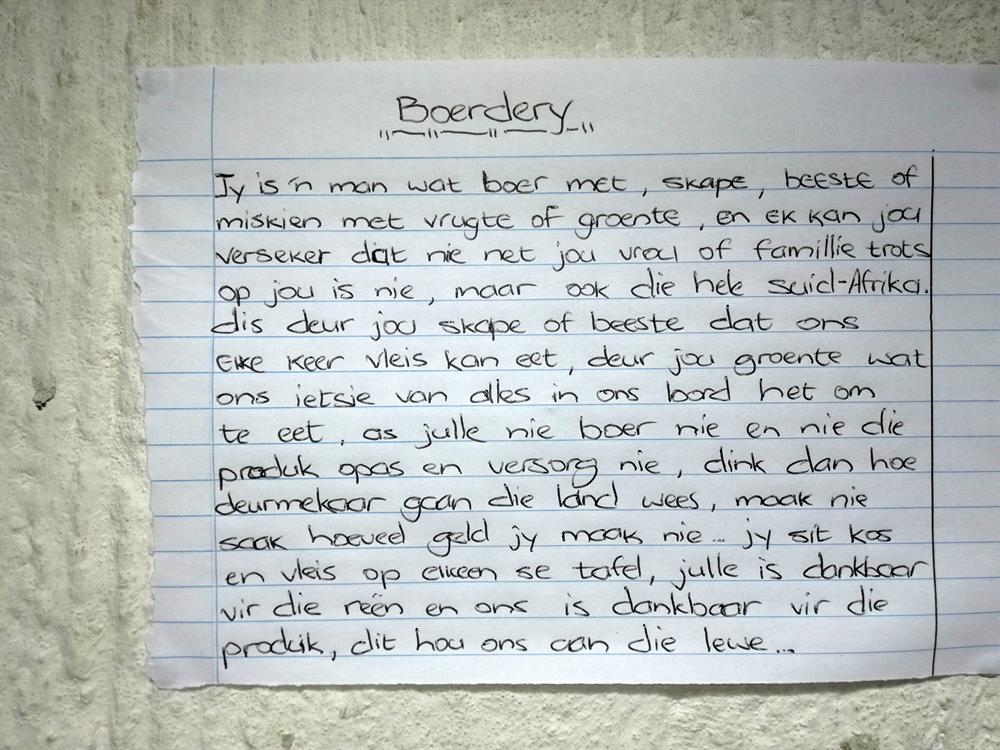 Boerdery
Jy is 'n man wat boer met, skape, beeste of
miskien met vrugte of groente, en ek kan jou
verseker dat nie net jou vrou of famillie trots
op jou is nie, maar ook die hele suid-Afrika.
dis deur jou skape of beeste dat ons
elke keer vleis kan eet, deur jou groente wat
ons ietsie van alles in ons bord het om
te eet, as julle nie boer nie en nie die
produk opas en versorg nie, dink dan hoe
deurmekaar gaan die land wees, maak nie
saak hoeveel geld jy maak nie... jy sit kos
en vleis op elkeen se tafel, julle is dankbaar
vir die reën en ons is dankbaar vir die
produk, dit hou ons aan die lewe...